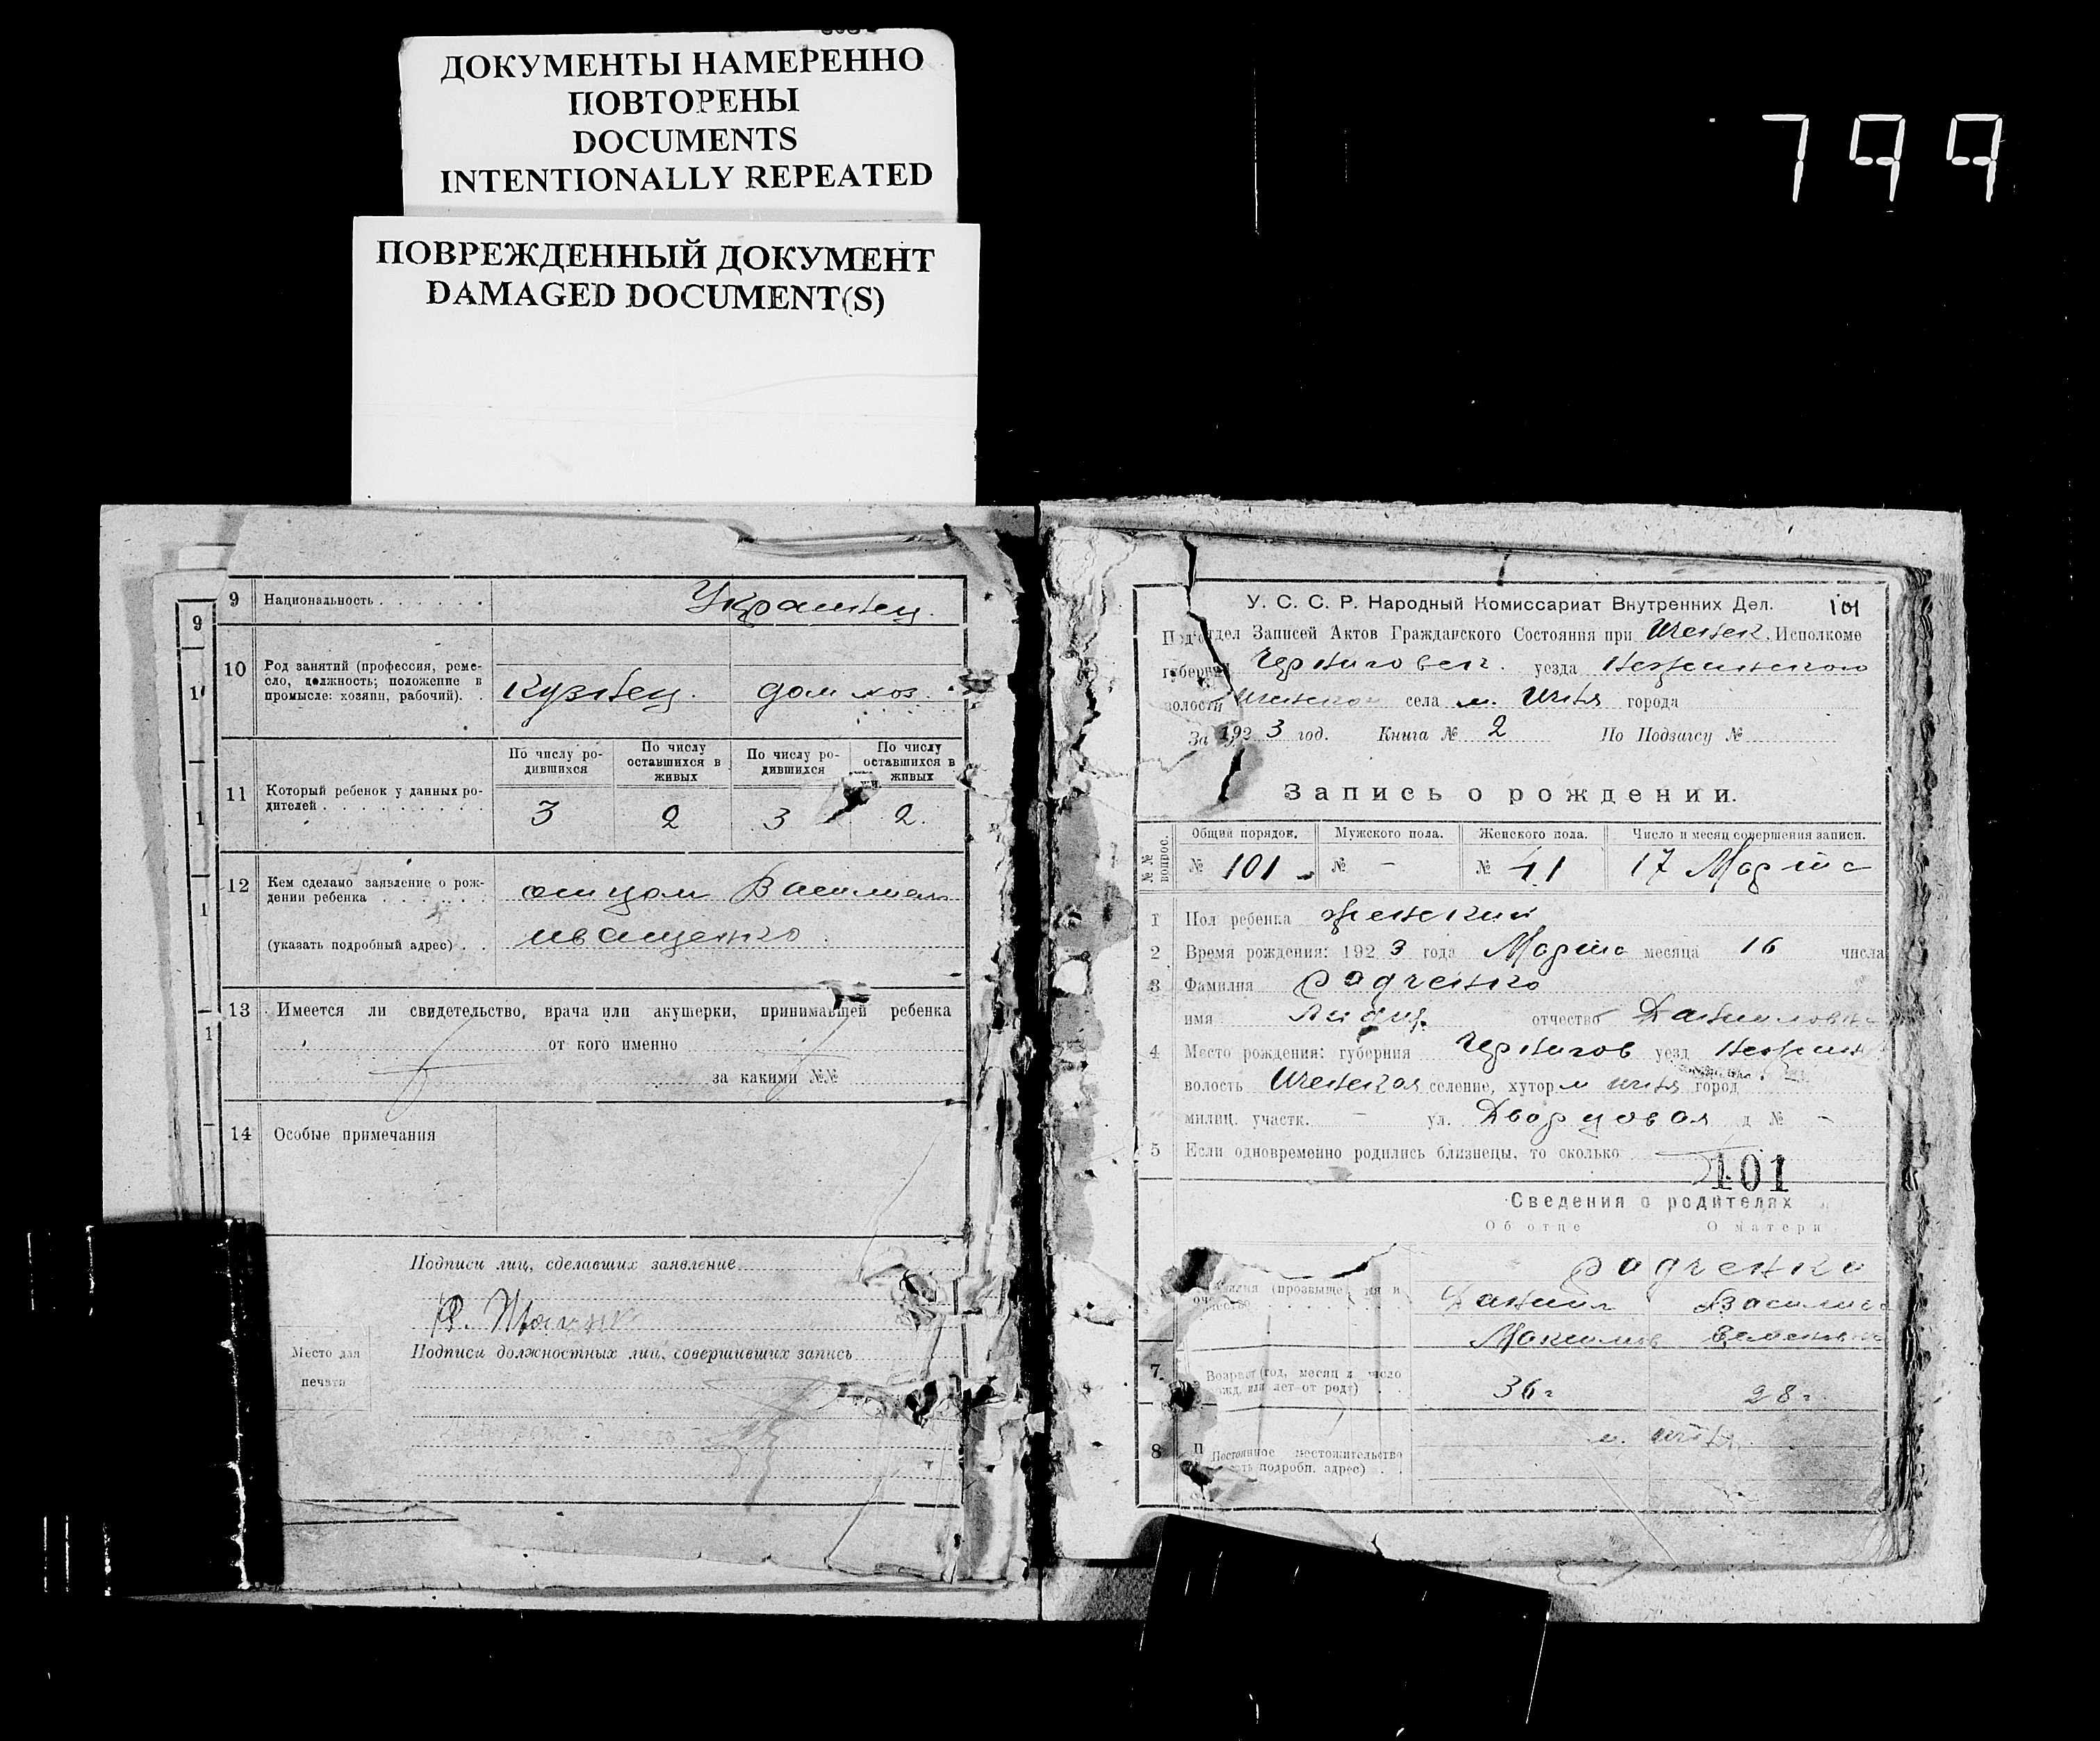 ДОКУМЕНТЫ НАМЕРЕННО
ПОВТОРЕНЫ
DOCUMENTS
INTENTIONALLY REPEATED
799
ПОВРЕЖДЕННЫЙ ДОКУМЕНТ
DAMAGED DOCUMENT(S)
9 Национальность . . . . . . Украинец.
10 Род занятий (профессия, реме-
сло, должность; положение в
промысле: хозяин, рабочий). . кузнец. дом хоз.
11 Который ребенок у данных ро-
дителей . . . . . . . . .
По числу ро-
дившихся
По числу
оставшихся в
живых
По числу ро-
дившихся
По числу
оставшихся в
живых
3 2 3 2.
12 Кем сделано заявление о рож-
дении ребенка . . . . . . отцом Василием
(указать подробный адрес) . . Иващенко
13 Имеется ли свидетельство, врача или акушерки, принимавшей ребенка
от кого именно
за какими №№
14 Особые примечания
Подписи лиц, сделавших заявление
Подписи должностных лиц, совершивших запись
Место для
печати
У. С. С. Р. Народный Комиссариат Внутренних Дел. 101
Под'отдел Записей Актов Гражданского Состояния при Ичнянск. Исполкоме
губернии Черниговск. уезда Нежинского
волости Ичнянской села м. Ичня города
За 1923 год. Книга № 2 По Подзагсу №
Запись о рождении.
№№ вопрос.
Общий порядок. Мужского пола. Женского пола. Число и месяц совершения записи.
№ 101 № - № 41 17 Марта
1 Пол ребенка женский
2 Время рождения: 1923 года Марта месяца 16 числа
3 Фамилия Радченко
имя Лидия отчество Даниловна
4 Место рождения: губерния Чернигов уезд Нежин
волость Ичнянская селение, хутор м Ичня город
милиц. участк. - ул. Дворцовая д № -
5 Если одновременно родились близнецы, то сколько
101
Сведения о родителях
Об отце О матери
Радченко
Даниил Василиса
Максимов Семеновна
7 Возраст (год, месяц и число
рожд. или лет от роду) . . 36 г 28 г
8 Постоянное местожительство
подробн. адрес) . . м. Ичня